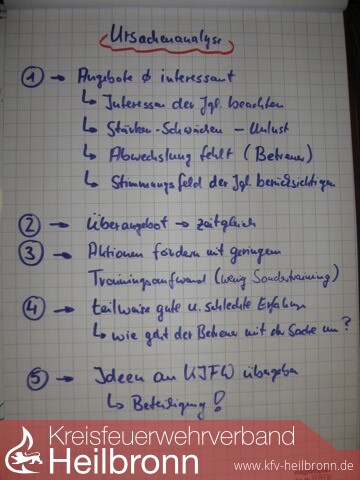 Ursachenanalyse
① → Angebote ∅ interessant
↳ Interessen der Jgl. beachten
↳ Stärken-Schwächen - Unlust
↳ Abwechslung fehlt (Betreuer)
↳ Stimmungsfeld der Jgl. berücksichtigen
② → Überangebot → zeitgleich
③ → Aktionen fördern mit geringem
Trainingsaufwand (wenig Sondertraining)
④ → teilweise gute u. schlechte Erfahrun
↳ wie geht der Betreuer mit der Sache um?
⑤ → Ideen an KJFW übergeben
↳ Beteiligung!
Kreisfeuerwehrverband
Heilbronn
www.kfv-heilbronn.de